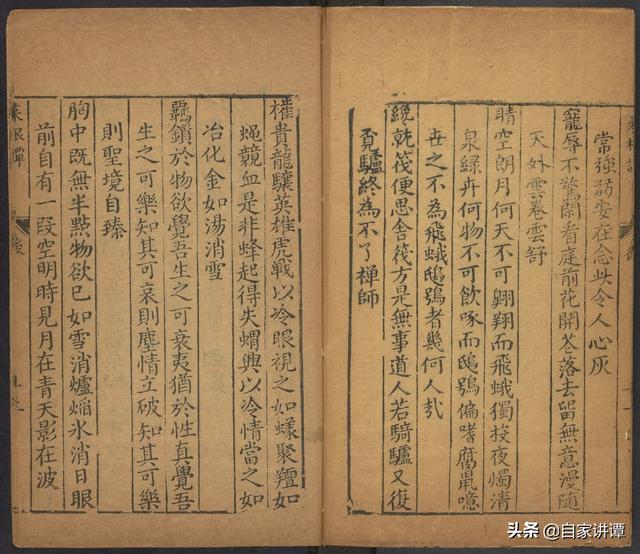 常強弱安在念此令人心灰
寵辱不驚閒看庭前花開花落去留無意漫隨
天外雲卷雲舒
晴空朗月何天不可翱翔而飛蛾獨投夜燭清
泉綠卉何物不可飲啄而鴟鴞偏嗜腐鼠噫
世之不為飛蛾鴟鴞者幾何人哉
纔就筏便思舍筏方是無事道人若騎驢又復
覓驢終為不了禪師
權貴龍驤英雄虎戰以冷眼視之如蟻聚羶如
蝇競血是非蜂起得失蝟興以冷情當之如
冶化金如湯消雪
羈鎖於物欲覺吾生之可哀夷猶於性真覺吾
生之可樂知其可哀則塵情立破知其可樂
則聖境自臻
胸中既無半點物欲已如雪消爐焰氷消日眼
前自有一段空明時見月在青天影在波
後
头条 @自家讲谭